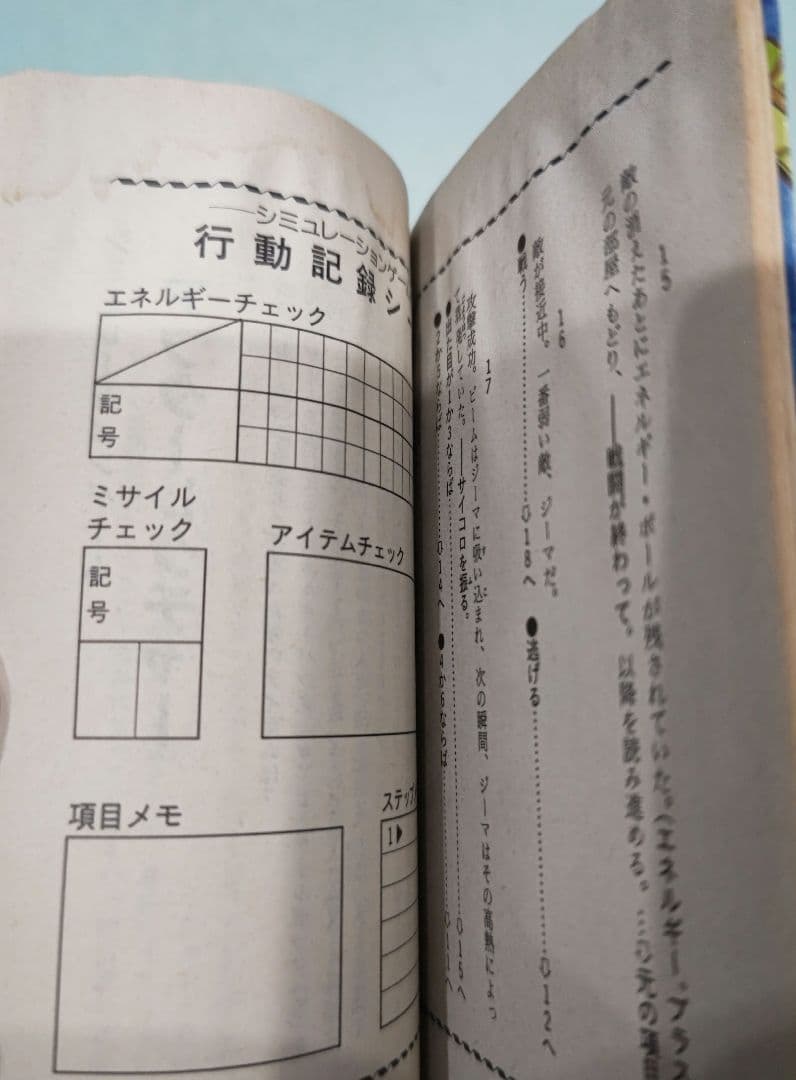 ――シミュレーションゲー
行動記録シ
エネルギーチェック
記
号
ミサイル
チェック
記
号
アイテムチェック
項目メモ
ステップ
1▶
15
敵の消えたあとにエネルギー・ボールが残されていた。〈エネルギー。プラス
元の部屋へもどり、――戦闘が終わって。以降を読み進める。…⇨元の項目
16
敵が接近中。一番弱い敵、ジーマだ。
●戦う…………⇨18へ ●逃げる…………⇨12へ
17
攻撃成功。ビームはジーマに吸い込まれ、次の瞬間、ジーマはその高熱によっ
て蒸発していた。――サイコロを振る。
●出た目が1か3ならば…………⇨15へ
●2か5ならば…………⇨14へ ●4か6ならば…………⇨11へ